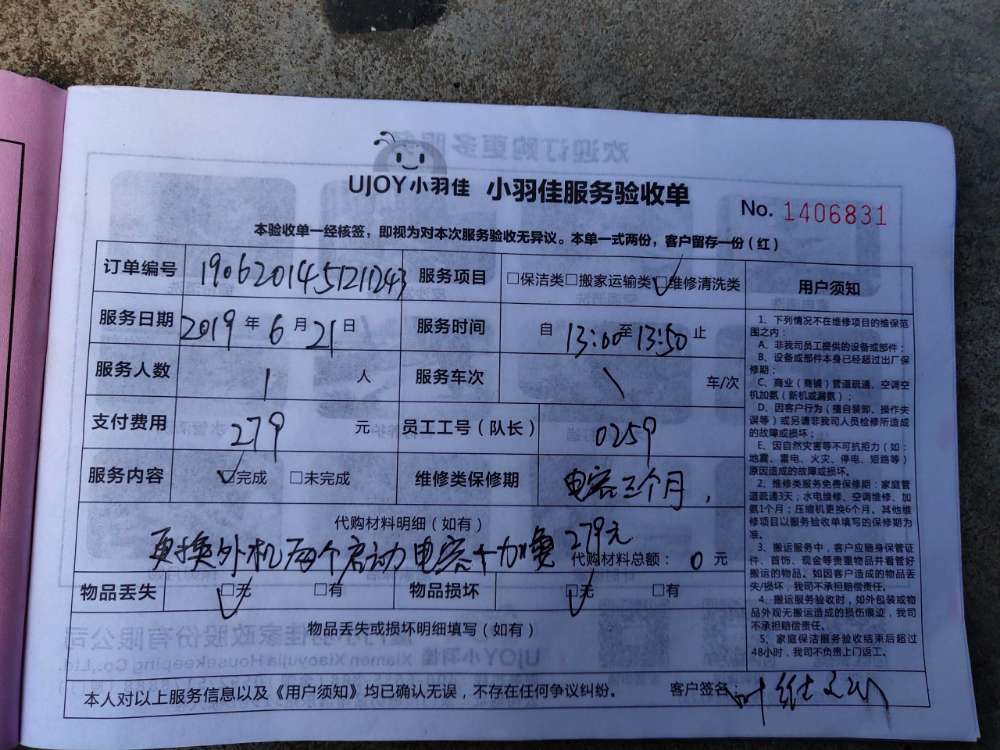 UJOY小羽佳 小羽佳服务验收单
No. 1406831
本验收单一经核签，即视为对本次服务验收无异议。本单一式两份，客户留存一份（红）
订单编号 1906201451211243 服务项目 □保洁类□搬家运输类□维修清洗类
服务日期 2019 年 6 月 21 日 服务时间 自 13:00至13:50止
服务人数 1 人 服务车次 \ 车/次
支付费用 279 元 员工工号（队长） 0259
服务内容 □完成 □未完成 维修类保修期 电容三个月，
代购材料明细（如有）
更换外机两个启动电容+加氟 279元
代购材料总额： 0 元
物品丢失 □无 □有 物品损坏 □无 □有
物品丢失或损坏明细填写（如有）
本人对以上服务信息以及《用户须知》均已确认无误，不存在任何争议纠纷。 客户签名：
用户须知
1、下列情况不在维修项目的维保范
围之内：
A、非我司员工提供的设备或部件；
B、设备或部件本身已经超过出厂保
修期；
C、商业（商铺）管道疏通、空调空
机加氨（新机或漏氨）；
D、因客户行为（擅自装卸、操作失
误等）或另请非我司人员检修所造成
的故障或损坏；
E、因自然灾害等不可抗拒力（如：
地震、雷电、火灾、停电、短路等）
原因造成的故障或损坏。
2、维修类服务免费保修期：家庭管
道疏通3天；水电维修、空调维修、加
氨1个月；压缩机更换6个月。其他维
修项目以服务验收单填写的保修期为
准。
3、搬运服务中，客户应随身保管证
件、首饰、现金等贵重物品并看管好
搬运的物品。如因客户造成的物品丢
失/损坏，我司不承担赔偿责任。
4、搬运服务验收时，如外包装或物
品外观无搬运造成的损伤痕迹，我司
不承担赔偿责任。
5、家庭保洁服务验收结束后超过
48小时，我司不负责上门返工。